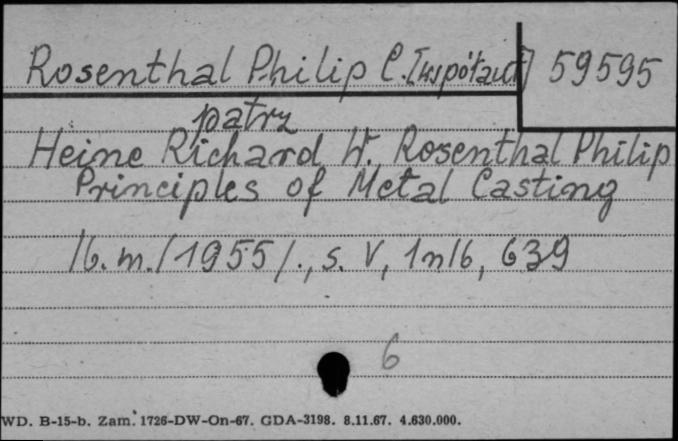 Rosenthal Philip C. [współaut] 59595
patrz
Heine Richard W. Rosenthal Philip
Principles of Metal Casting
/b.m./1955/., s. V, 1nlb, 639
6
WD. B-15-b. Zam. 1726-DW-On-67. GDA-3198. 8.11.67. 4.630.000.